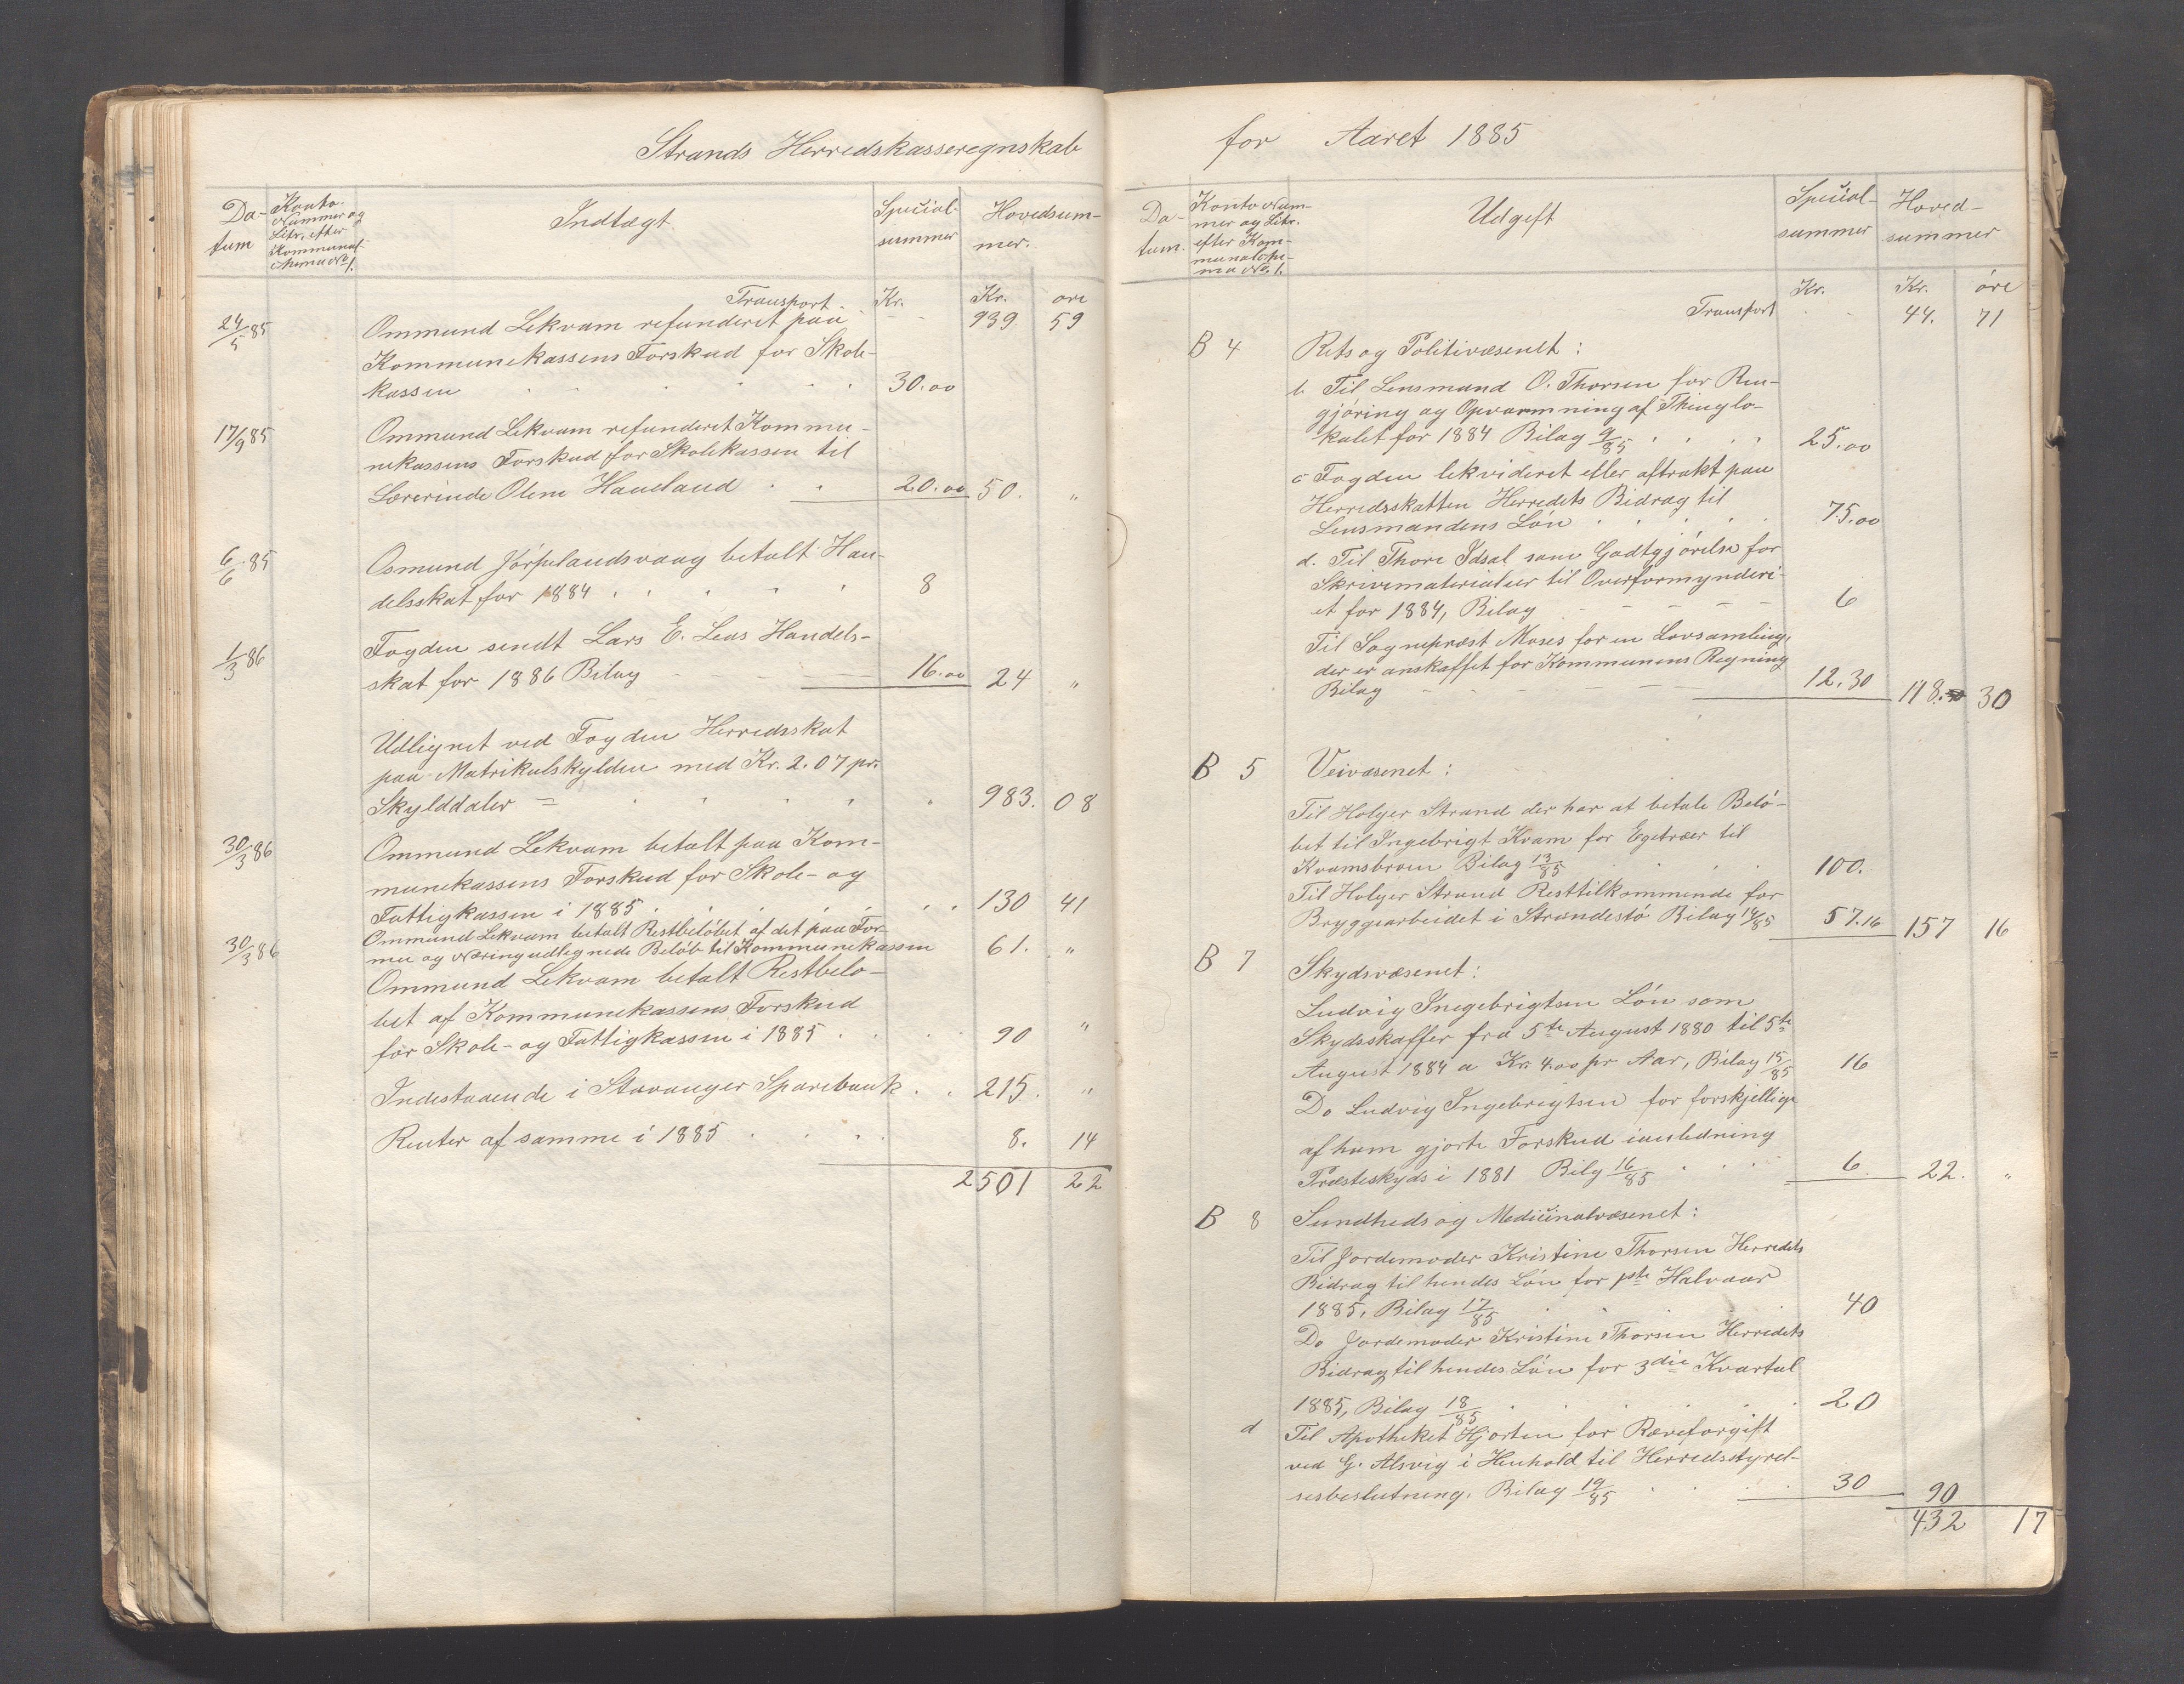 Strands Herredskasseregnskab
Da-
tum
Konto-
Nummer og
Litr. efter
Kommunal-
schema No 1.
Indtægt
Special-
summer
Hovedsum-
mer.
Transport. Kr. Kr. øre
24/5 85 Ommund Lekvam refunderet paa 939 59
Kommunekassens Forskud for Skole-
kassen 30.00
17/9 85 Ommund Lekvam refunderet Kommu-
nekassens Forskud for Skolekassen til
Lærerinde Olene Haueland 20.00 50. "
6/6 85 Osmund Jørpelandsvaag betalt Han-
delsskat for 1884 8
1/3 86 Fogden sendt Lars E. Leas Handels-
skat for 1886 Bilag 16.00 24 "
Udlignet ved Fogden Herredsskat
paa Matrikulskylden med Kr. 2.07 pr.
Skylddaler = 983. 08
30/3 86 Ommund Lekvam betalt paa Kom-
munekassens Forskud for Skole- og
Fattigkassen i 1885 130 41
30/3 86 Ommund Lekvam betalt Restbeløbet af det paa For-
mue og Næring udlignede Beløb til Kommunekassen 61. "
Ommund Lekvam betalt Restbelø-
bet af Kommunekassens Forskud
for Skole- og Fattigkassen i 1885 90 "
Indestaaende i Stavanger Sparebank 215. "
Renter af samme i 1885 8. 14
2501 22
for Aaret 1885
Da-
tum.
Konto Num-
mer og Litr.
efter Kom-
munalsche-
ma No. 1.
Udgift
Special-
summer
Hoved-
summer
Kr. Kr. øre
Transport 44. 71
B 4 Rets og Politivæsenet:
b Til Lensmand O. Thorsen for Ren-
gjøring og Opvarmning af Thinglo-
kalet for 1884 Bilag 9/85 25.00
c Fogden lekvideret eller aftrukt paa
Herredsskatten Herredets Bidrag til
Lensmandens Løn 75.00
d. Til Thore Idsal som Godtgjørelse for
Skrivematerialier til Overformynderi-
et for 1884, Bilag 6
Til Sognepræst Moses for en Lovsamling,
der er anskaffet for Kommunens Regning
Bilag 12.30 118. 30
B 5 Veivæsenet:
Til Holger Strand der har at betale Belø-
bet til Ingebrigt Kvam for Egetræer til
Kvamsbroen Bilag 13/85 100.
Til Holger Strand Resttilkommende for
Bryggearbeidet i Strandestø Bilag 14/85 57.16 157 16
B 7 Skydsvæsenet:
Ludvig Inegebrigtsen Løn som
Skydsskaffer fra 5te August 1880 til 5te
August 1884 a Kr. 4.00 pr Aar, Bilag 15/85 16
Do Ludvig Ingebrigtsen for forskjellige
af ham gjorte Forskud ianledning
Præsteskyds i 1881 Bilg 16/85 6. 22. "
B 8 Sundheds og Medicinalvæsenet:
Til Jordemoder Kristine Thorsen Herredets
Bidrag til hendes Løn for 1ste Halvaar
1885, Bilag 17/85 40
Do Jordemoder Kristine Thorsen Herredets
Bidrag til hendes Løn for 3die Kvartal
1885, Bilag 18/85 20
d Til Apotheket Hjorten for Ræveforgift
ved G. Alsvig i Henhold til Herredsstyrel-
sesbeslutning. Bilag 19/85 30 90
432 17